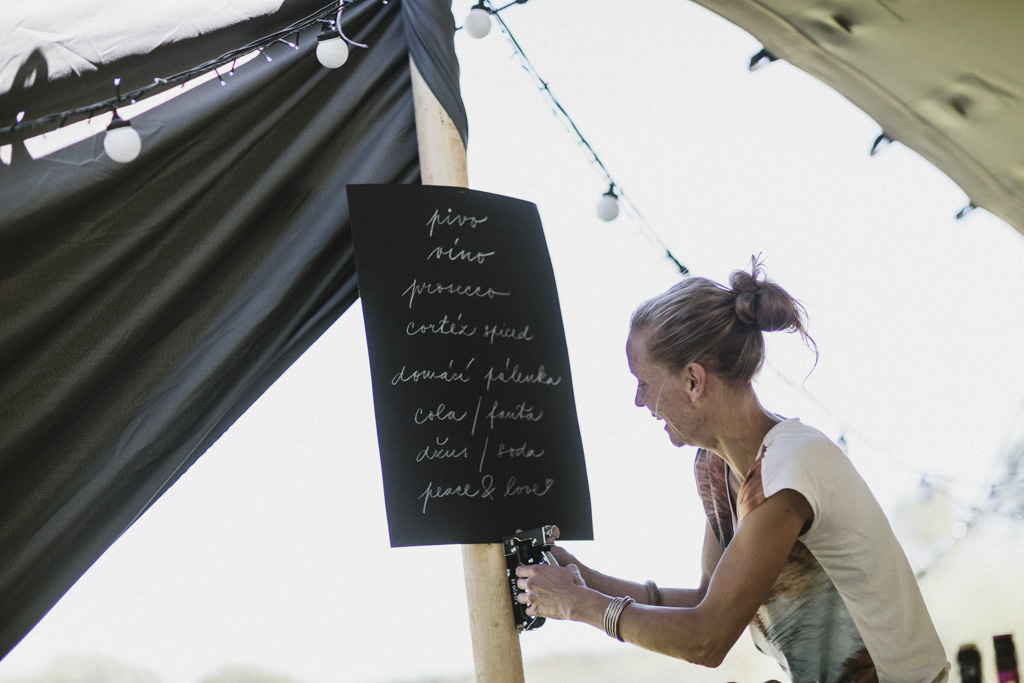 pivo
víno
prosecco
cortéz spiced
domácí pálenka
cola / fanta
džus / soda
peace & love